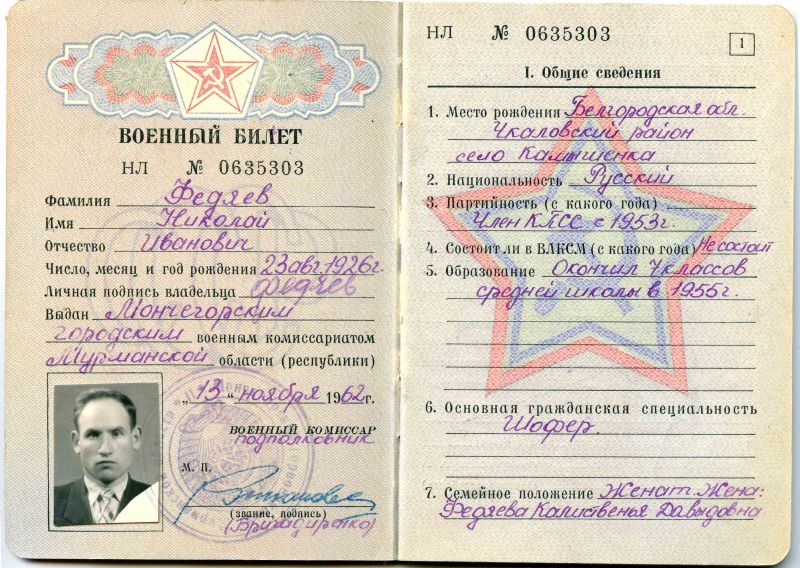 ВОЕННЫЙ БИЛЕТ
НЛ № 0635303
Фамилия Федяев
Имя Николай
Отчество Иванович
Число, месяц и год рождения 23 авг. 1926г.
Личная подпись владельца Федяев
Выдан Мончегорским
городским военным комиссариатом
Мурманской области (республики)
„13“ ноября 1962г.
ВОЕННЫЙ КОМИССАР
подполковник
М. П.
(звание, подпись)
(Бригадиренко)
НЛ № 0635303
1
I. Общие сведения
1. Место рождения Белгородская обл.
Чкаловский район
село Камышенка
2. Национальность Русский
3. Партийность (с какого года)
Член КПСС с 1953г.
4. Состоит ли в ВЛКСМ (с какого года) Не состоит
5. Образование Окончил 7 классов
средней школы в 1955г.
6. Основная гражданская специальность
Шофер.
7. Семейное положение Женат. Жена:
Федяева Давыдовна